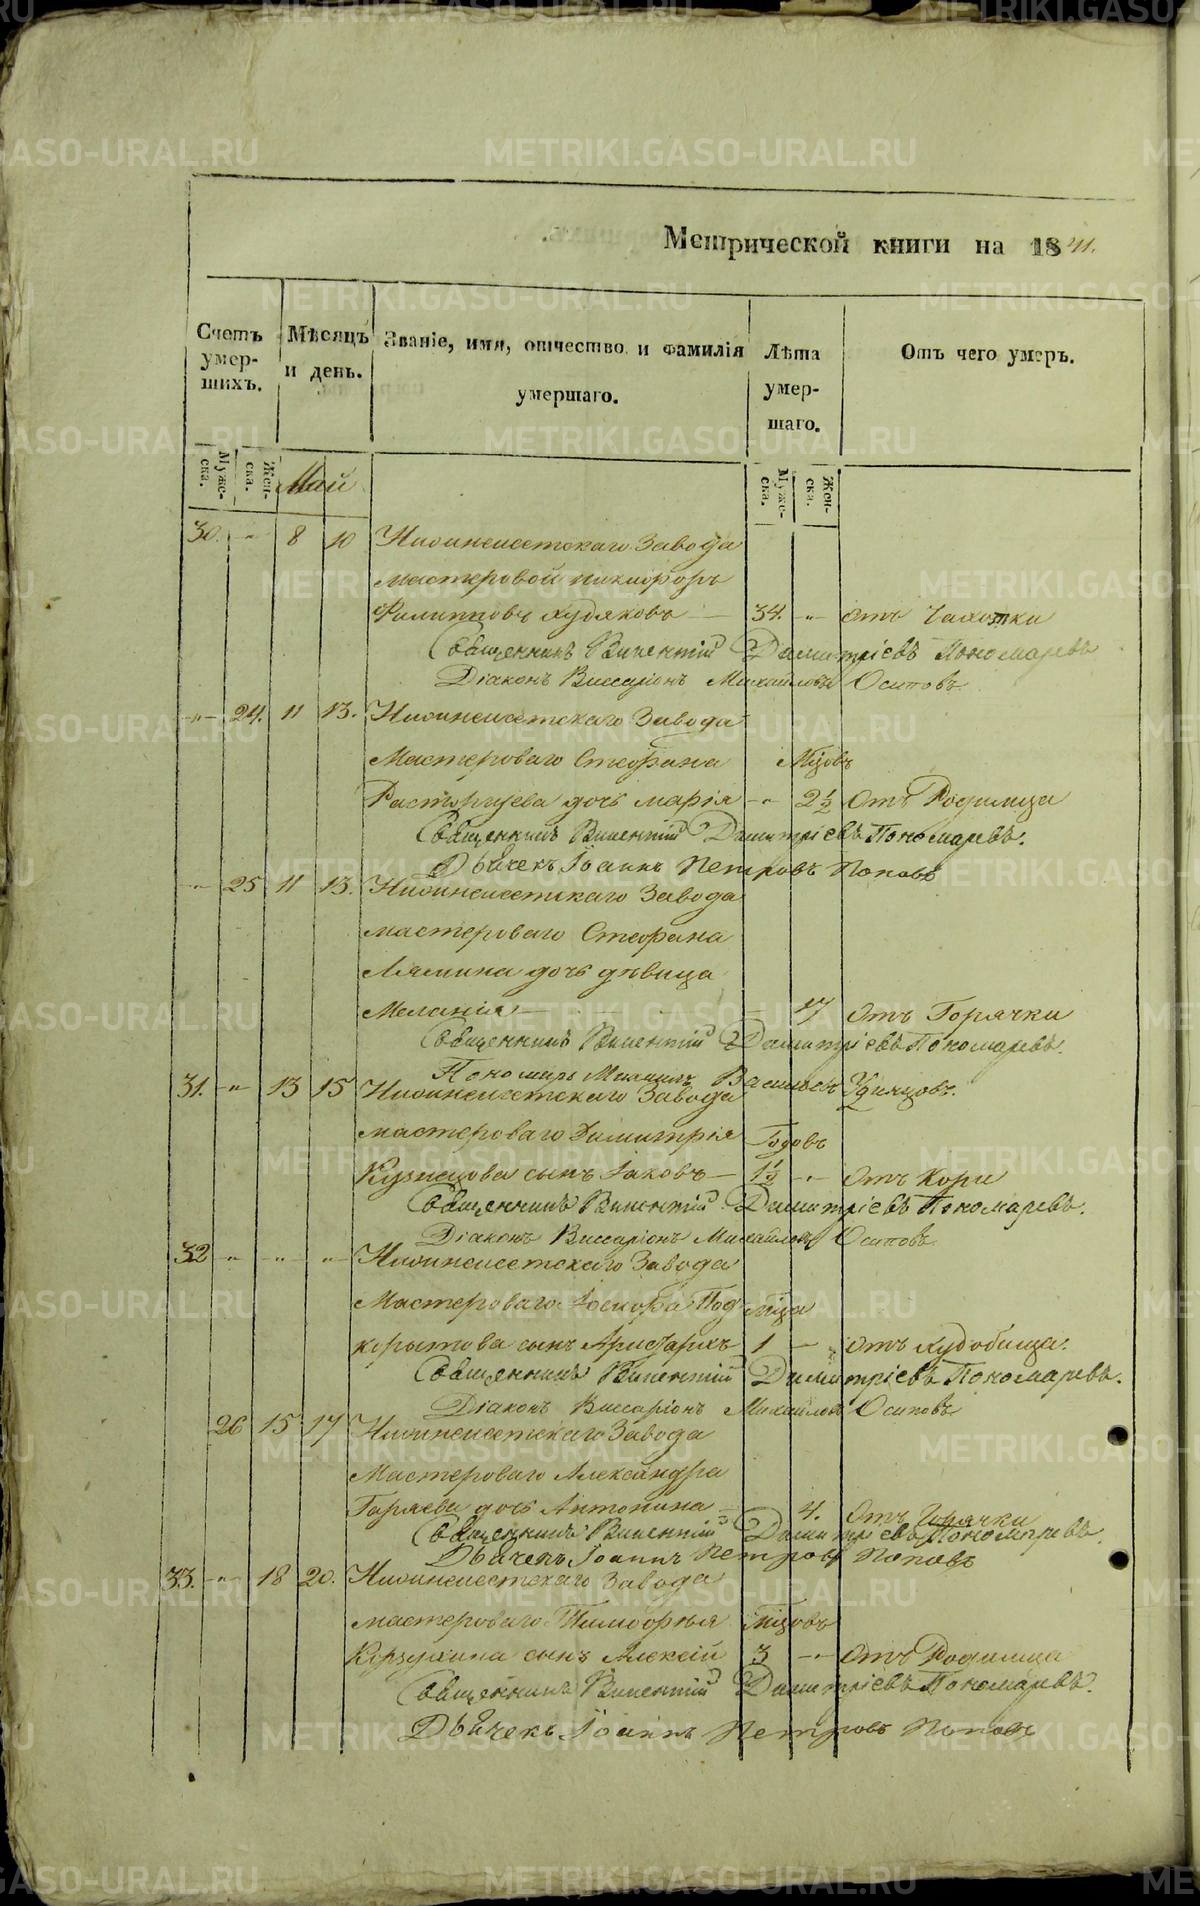 METRIKI.GASO-URAL.RU
Метрической книги на 1841.
Счетъ умер-шихъ.
Мѣсяцъ и день.
Званіе, имя, отчество и фамилія умершаго.
Лѣта умер-шаго.
Отъ чего умеръ.
Муже-ска.
Жен-ска.
Муже-ска.
Жен-ска.
Май
30. -"- 8 10 Нижнеисетскаго Завода
мастеровой Никифоръ
Филипповъ Худяковъ — 34. -"- отъ Чахотки
Священникъ Викентій Димитріевъ Пономаревъ
Діаконъ Виссаріонъ Михайловъ Осиповъ
-"- 24. 11 13. Нижнеисетскаго Завода
Мастероваго Стефана Мцовъ
дочь Марія -"- 2½ Отъ Родимца
Священникъ Викентій Димитріевъ Пономаревъ.
Дьячекъ Іоаннъ Петровъ Поповъ
-"- 25 11 13. Нижнеисетскаго Завода
мастероваго Стефана
Лямина дочь дѣвица
Меланія — 17 отъ Горячки
Священникъ Викентій Димитріевъ Пономаревъ.
Пономарь Михаилъ Васильевъ Удинцовъ.
31. -"- 13 15 Нижнеисетскаго Завода
мастероваго Димитрія Годовъ
Кузнецова сынъ Іаковъ — 1½ -"- отъ Кори
Священникъ Викентій Димитріевъ Пономаревъ.
Діаконъ Виссаріонъ Михайловъ Осиповъ
32 -"- -"- -"- Нижнеисетскаго Завода
Мастероваго Под мца
корытова сынъ Аристархъ 1 -"- отъ худобища.
Священникъ Викентій Димитріевъ Пономаревъ.
Діаконъ Виссаріонъ Михайловъ Осиповъ
26 15 17 Нижнеисетскаго Завода
Мастероваго Александра
Гаряева дочь Антонина — 4. Отъ Горячки
Священникъ Викентій Димитріевъ Пономаревъ.
Дьячекъ Іоаннъ Петровъ Поповъ
33. -"- 18 20. Нижнеисетскаго Завода
мастероваго Тимофѣя мцовъ
сынъ Алексій 3 -"- Отъ Родимца
Священникъ Викентій Димитріевъ Пономаревъ.
Дьячекъ Іоаннъ Петровъ Поповъ